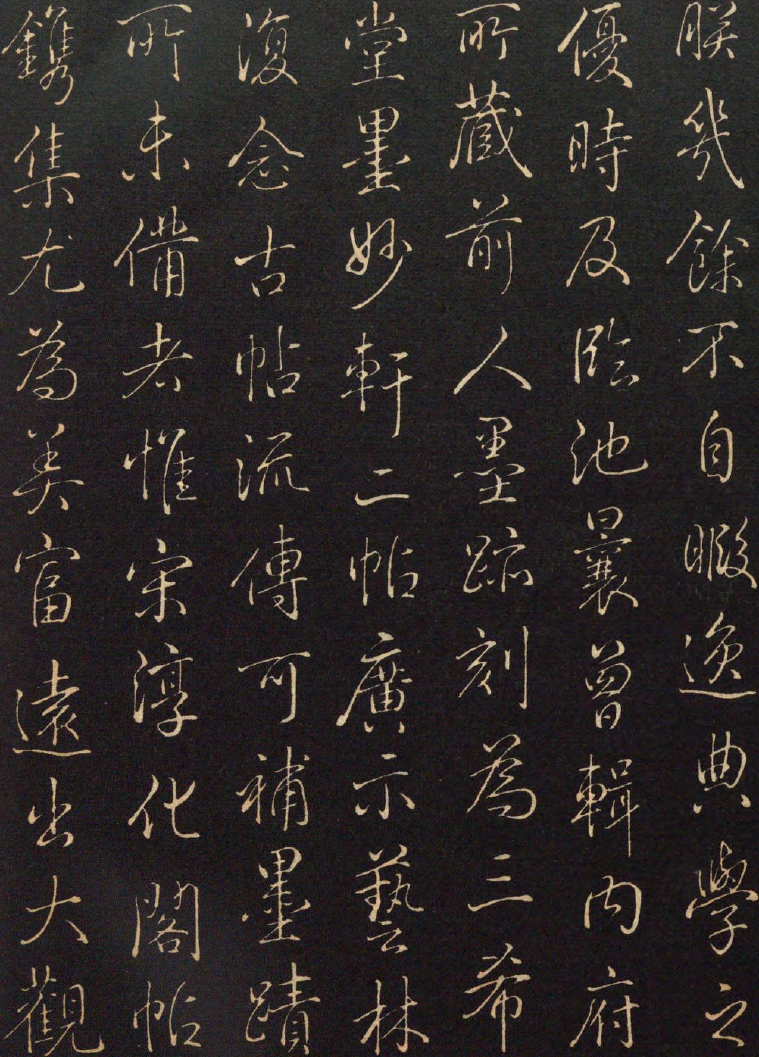 朕幾餘不自暇逸典學之
優時及臨池曩曽輯内府
所蔵前人墨跡刻為三希
堂墨妙軒二帖廣示藝林
復念古帖流傳可補墨蹟
所未備者惟宋淳化閣帖
鐫集尤為美富遠出大觀